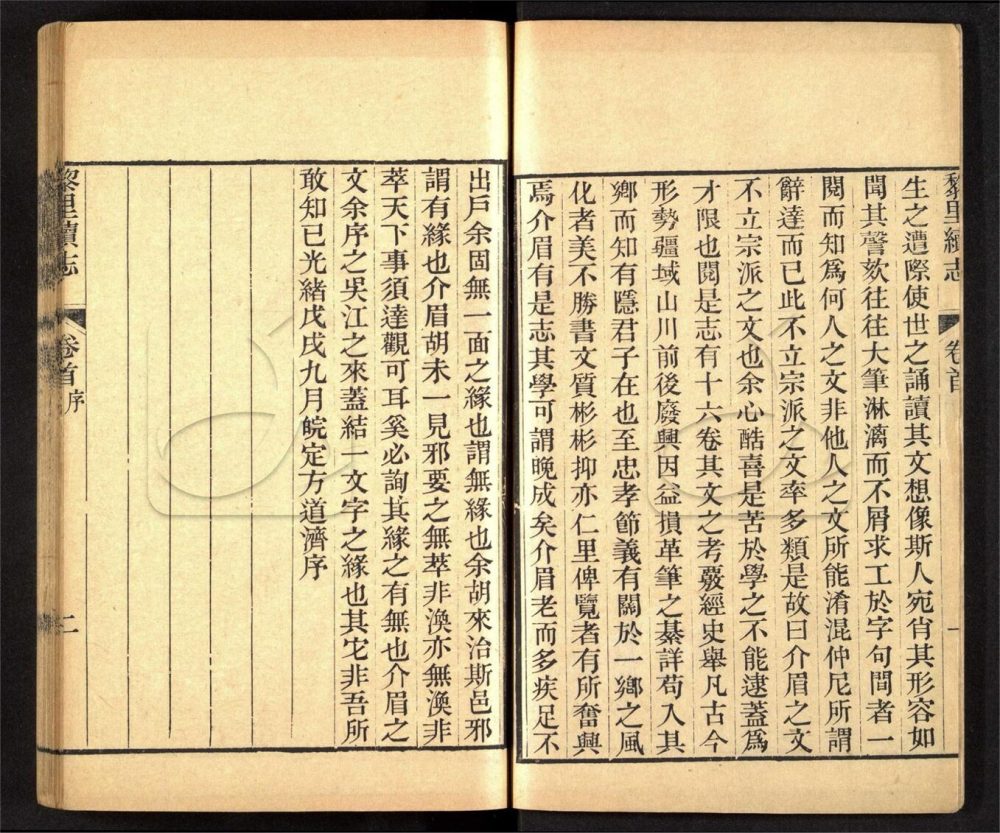 黎里續志
卷首
一
生之遭際使世之誦讀其文想像斯人宛肖其形容如
聞其謦欬往往大筆淋漓而不屑求工於字句間者一
閱而知爲何人之文非他人之文所能淆混仲尼所謂
辭達而已此不立宗派之文率多類是故曰介眉之文
不立宗派之文也余心酷喜是苦於學之不能逮蓋爲
才限也閱是志有十六卷其文之考覈經史舉凡古今
形勢疆域山川前後廢興因益損革筆之綦詳苟入其
鄉而知有隱君子在也至忠孝節義有關於一鄉之風
化者美不勝書文質彬彬抑亦仁里俾覽者有所奮興
焉介眉有是志其學可謂晚成矣介眉老而多疾足不
出戶余固無一面之緣也謂無緣也余胡來治斯邑邪
謂有緣也介眉胡未一見邪要之無萃非渙亦無渙非
萃天下事須達觀可耳奚必詢其緣之有無也介眉之
文余序之吳江之來蓋結一文字之緣也其它非吾所
敢知已光緒戊戌九月皖定方道濟序
黎里續志
卷首
序
二